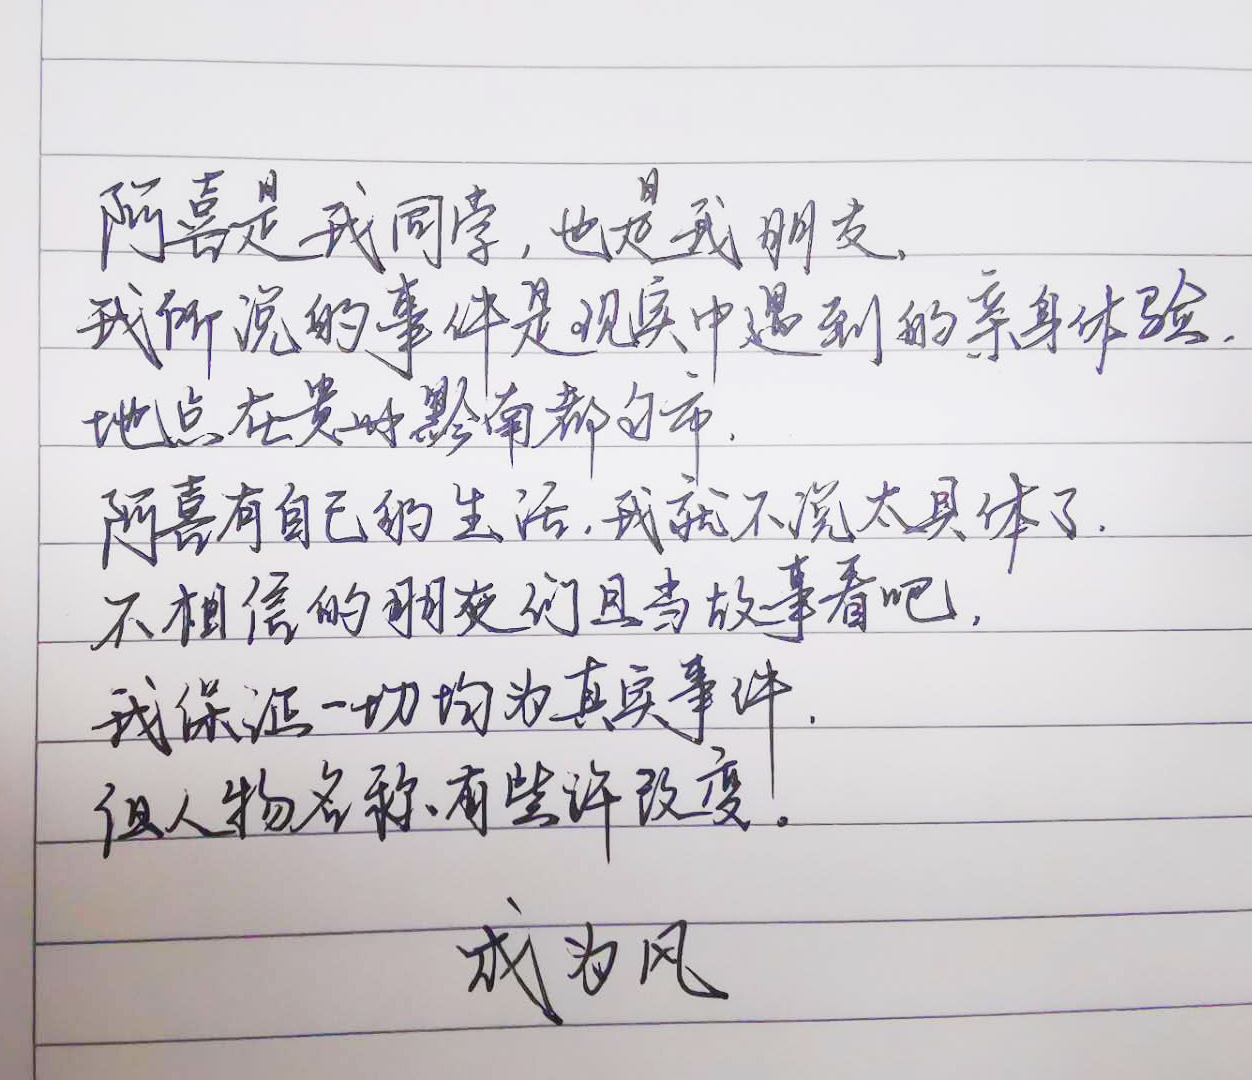 阿喜是我同学,也是我朋友、
我所说的事件是现实中遇到的亲身体验.
地点在贵州黔南都匀市.
阿喜有自己的生活.我就不说太具体了.
不相信的朋友们且当故事看吧.
我保证一切均为真实事件.
但人物名称、有些许改变。
成为风